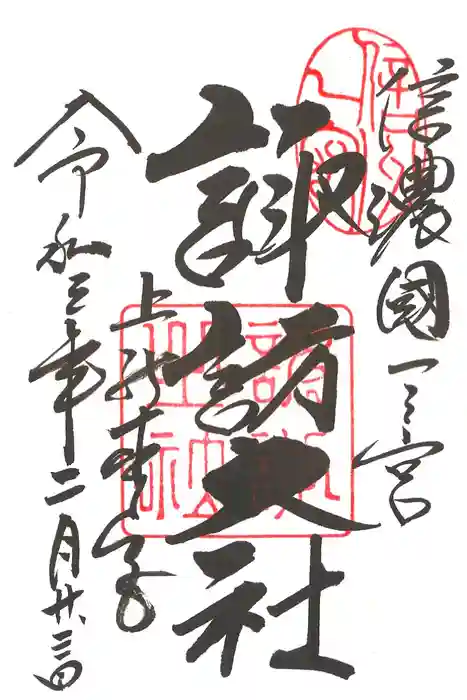 信濃國一之宮
諏訪大社
上社本宮
令和三年二月廿三日